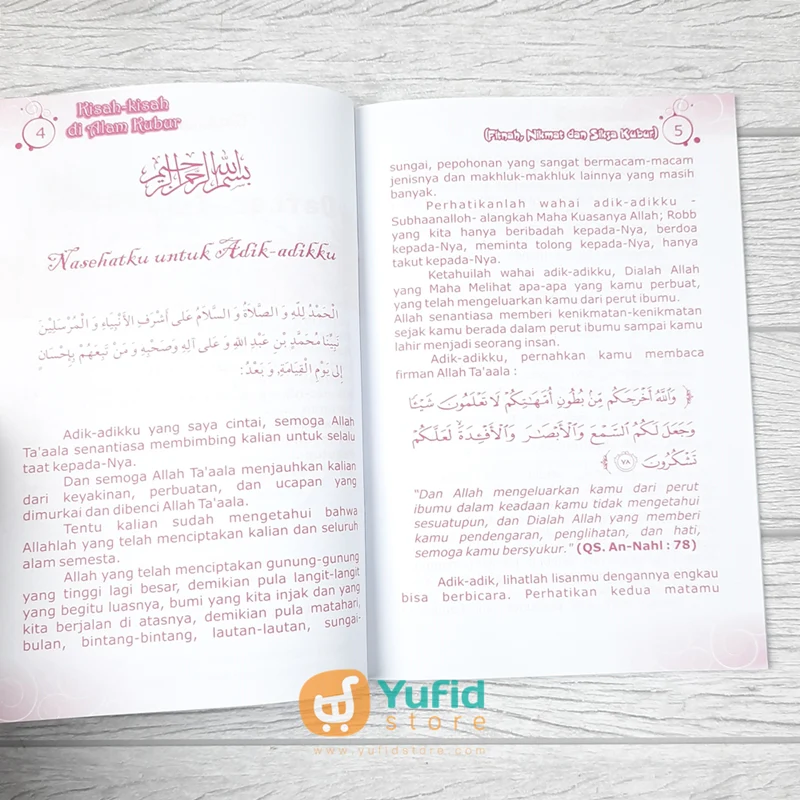 4
Kisah-kisah
di Alam Kubur
بسم الله الرحمن الرحيم
Nasehatku untuk Adik-adikku
الْحَمْدُ لِلَّهِ وَ الصَّلَاةُ وَ السَّلَامُ عَلَى أَشْرَفِ الْأَنْبِيَاءِ وَ الْمُرْسَلِيْنَ
نَبِيِّنَا مُحَمَّدِ بْنِ عَبْدِ اللهِ وَ عَلَى آلِهِ وَصَحْبِهِ وَ مَنْ تَبِعَهُمْ بِإِحْسَانٍ
إِلَى يَوْمِ الْقِيَامَةِ، وَ بَعْدُ:
Adik-adikku yang saya cintai, semoga Allah
Ta'aala senantiasa membimbing kalian untuk selalu
taat kepada-Nya.
Dan semoga Allah Ta'aala menjauhkan kalian
dari keyakinan, perbuatan, dan ucapan yang
dimurkai dan dibenci Allah Ta'aala.
Tentu kalian sudah mengetahui bahwa
Allahlah yang telah menciptakan kalian dan seluruh
alam semesta.
Allah yang telah menciptakan gunung-gunung
yang tinggi lagi besar, demikian pula langit-langit
yang begitu luasnya, bumi yang kita injak dan yang
kita berjalan di atasnya, demikian pula matahari,
bulan, bintang-bintang, lautan-lautan, sungai-
(Fitnah, Nikmat dan Siksa Kubur)
5
sungai, pepohonan yang sangat bermacam-macam
jenisnya dan makhluk-makhluk lainnya yang masih
banyak.
Perhatikanlah wahai adik-adikku -
Subhaanalloh- alangkah Maha Kuasanya Allah; Robb
yang kita hanya beribadah kepada-Nya, berdoa
kepada-Nya, meminta tolong kepada-Nya, hanya
takut kepada-Nya.
Ketahuilah wahai adik-adikku, Dialah Allah
yang Maha Melihat apa-apa yang kamu perbuat,
yang telah mengeluarkan kamu dari perut ibumu.
Allah senantiasa memberi kenikmatan-kenikmatan
sejak kamu berada dalam perut ibumu sampai kamu
lahir menjadi seorang insan.
Adik-adikku, pernahkan kamu membaca
firman Allah Ta'aala :
﴿ وَٱللَّهُ أَخْرَجَكُم مِّنۢ بُطُونِ أُمَّهَـٰتِكُمْ لَا تَعْلَمُونَ شَيْـًٔا
وَجَعَلَ لَكُمُ ٱلسَّمْعَ وَٱلْأَبْصَـٰرَ وَٱلْأَفْـِٔدَةَ ۙ لَعَلَّكُمْ
تَشْكُرُونَ ٧٨ ﴾
"Dan Allah mengeluarkan kamu dari perut
ibumu dalam keadaan kamu tidak mengetahui
sesuatupun, dan Dialah Allah yang memberi
kamu pendengaran, penglihatan, dan hati,
semoga kamu bersyukur." (QS. An-Nahl : 78)
Adik-adik, lihatlah lisanmu dengannya engkau
bisa berbicara. Perhatikan kedua matamu
Yufid
store
www.yufidstore.com